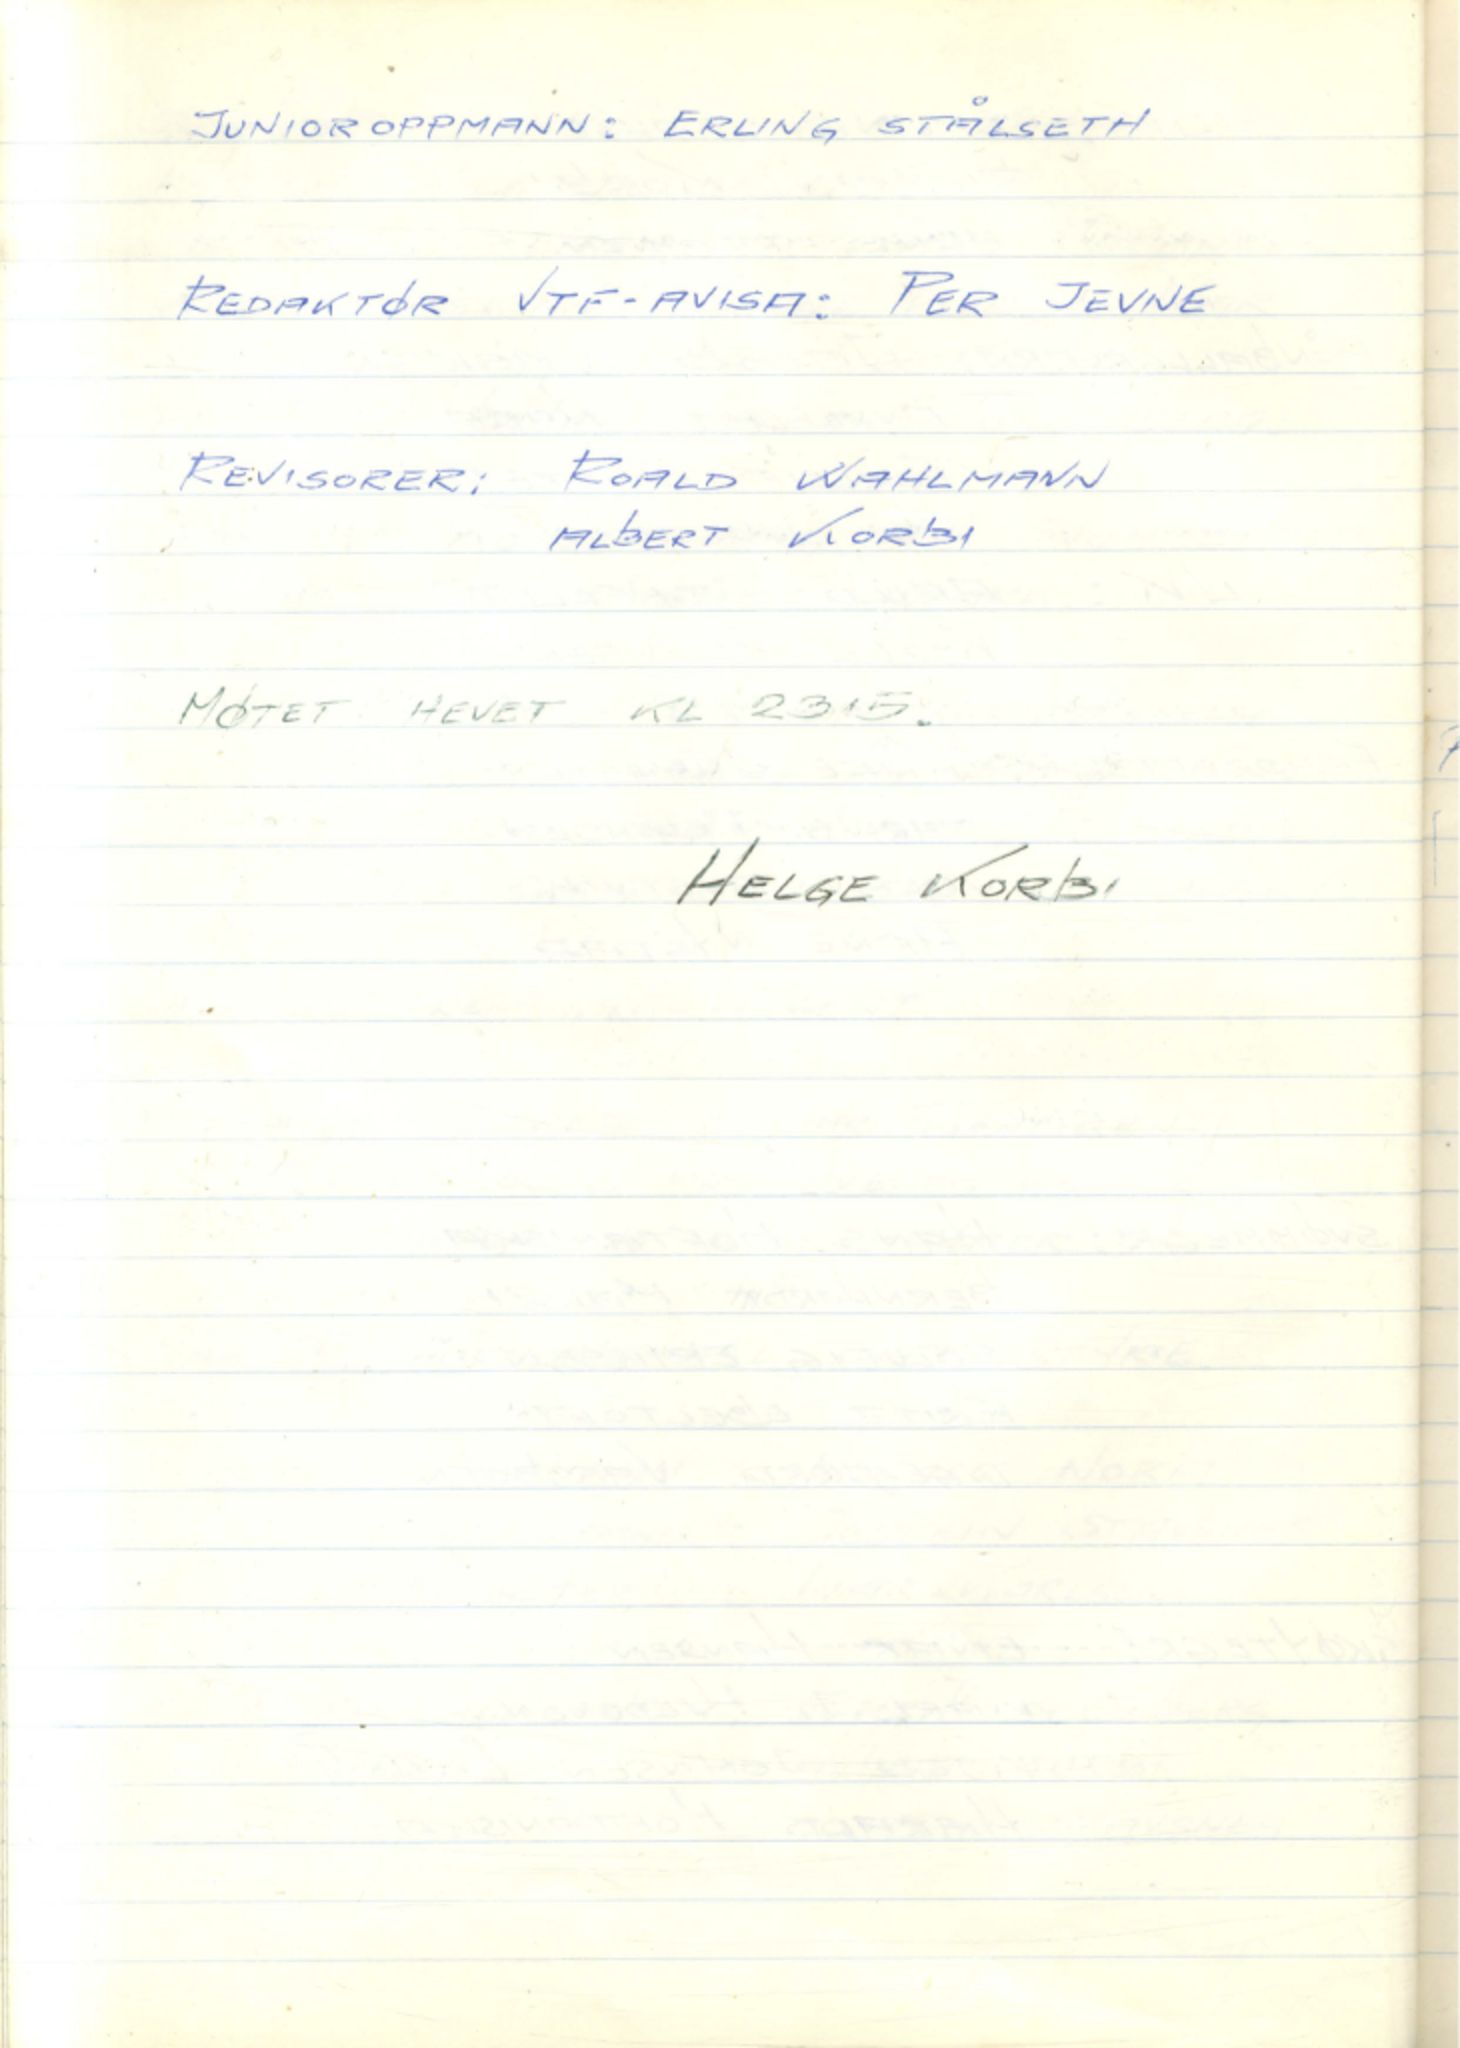 JUNIOROPPMANN: ERLING STÅLSETH
REDAKTØR VTF-AVISA: PER JEVNE
REVISORER: ROALD WAHLMANN
ALBERT KORBI
MØTET HEVET KL 2315.
HELGE KORBI